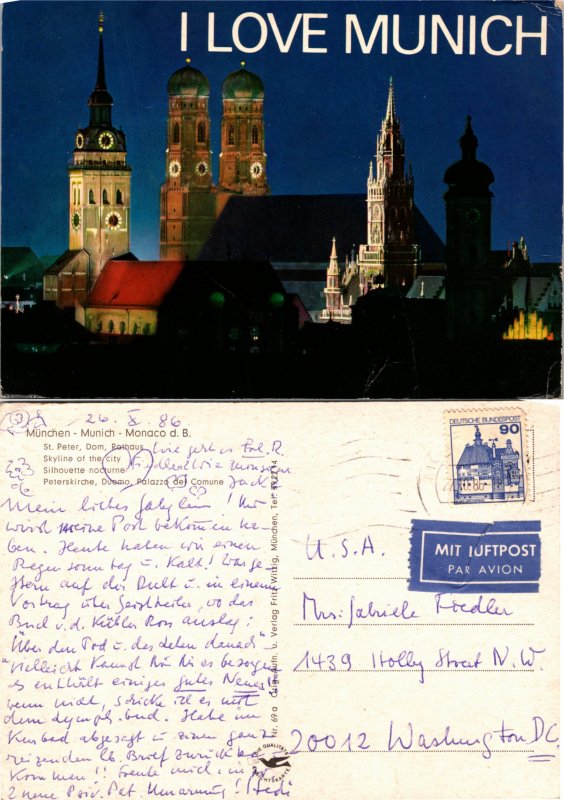 I LOVE MUNICH
26. X. 86
München - Munich - Monaco d. B.
St. Peter, Dom, Rathaus
Skyline of the city
Silhouette nocturne
Peterskirche, Duomo, Palazzo del Comune
wie geht es
Mein liebes Gabylein! Du
wirst meine Post bekommen ha-
ben. Heute haben wir einen
Regensonntag u. kalt! War ge-
stern auf der Dult u. in einem
Vortrag über Geistheiler, wo das
Buch v. d. Kübler Ross auslag:
"Über den Tod u. das Leben danach"-
Vielleicht kannst Du Dir es besorgen
es enthält einiges gutes Neues
wenn nicht, schicke ich es mit
dem Lymph. Habe im
Kurbad abgesagt u. einen ganz
reizenden lb. Brief zurück be-
kommen!! Freute mich,
2 neue Priv. Pat. Umarmung! Hedi
Nr. 69 a Farbaufn. u. Verlag Fritz Witzig, München, Tel.
DEUTSCHE BUNDESPOST
90
MIT LUFTPOST
PAR AVION
U.S.A.
Mrs. Gabriele Fiedler
1439 Holly Street N.W.
20012 Washington DC.